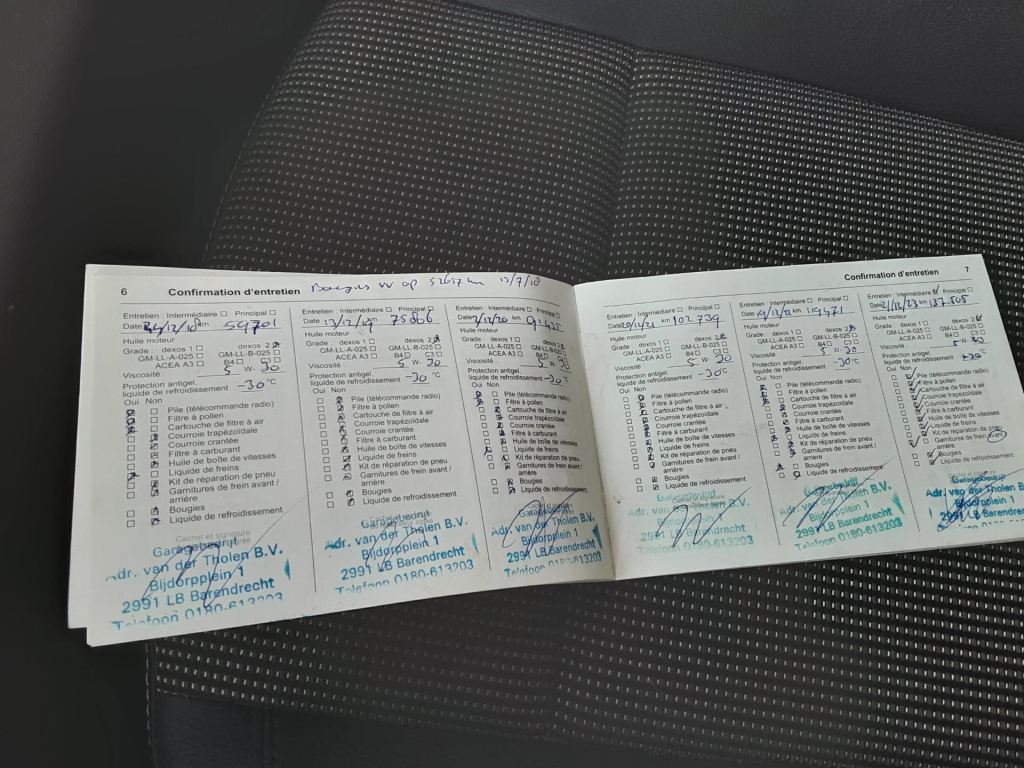 6 Confirmation d'entretien Bougies vv op 52657 km 13/7/18
Entretien : Intermédiaire Principal
Date 24/12/18 km 59701
Huile moteur
Grade : dexos 1 dexos 2
GM-LL-A-025 GM-LL-B-025
ACEA A3 B4 C3
Viscosité 5 W- 30
Protection antigel,
liquide de refroidissement -30 °C
Oui Non
Pile (télécommande radio)
Filtre à pollen
Cartouche de filtre à air
Courroie trapézoïdale
Courroie crantée
Filtre à carburant
Huile de boîte de vitesses
Liquide de freins
Kit de réparation de pneu
Garnitures de frein avant /
arrière
Bougies
Liquide de refroidissement
Cachet et signature
Garagebedrijf
Adr. van der Tholen B.V.
Bijdorpplein 1
2991 LB Barendrecht
Telefoon 0180-613203
Entretien : Intermédiaire Principal
Date 13/12/19 km 75806
Huile moteur
Grade : dexos 1 dexos 2
GM-LL-A-025 GM-LL-B-025
ACEA A3 B4 C3
Viscosité 5 W- 30
Protection antigel,
liquide de refroidissement -30 °C
Oui Non
Pile (télécommande radio)
Filtre à pollen
Cartouche de filtre à air
Courroie trapézoïdale
Courroie crantée
Filtre à carburant
Huile de boîte de vitesses
Liquide de freins
Kit de réparation de pneu
Garnitures de frein avant /
arrière
Bougies
Liquide de refroidissement
Garagebedrijf
Adr. van der Tholen B.V.
Bijdorpplein 1
2991 LB Barendrecht
Telefoon 0180-613203
Entretien : Intermédiaire Principal
Date 7/12/20 km
Huile moteur
Grade : dexos 1 dexos 2
GM-LL-A-025 GM-LL-B-025
ACEA A3 B4 C3
Viscosité 5 W- 30
Protection antigel,
liquide de refroidissement -30 °C
Oui Non
Pile (télécommande radio)
Filtre à pollen
Cartouche de filtre à air
Courroie trapézoïdale
Courroie crantée
Filtre à carburant
Huile de boîte de vitesses
Liquide de freins
Kit de réparation de pneu
Garnitures de frein avant /
arrière
Bougies
Liquide de refroidissement
Garagebedrijf
Adr. van der Tholen B.V.
Bijdorpplein 1
2991 LB Barendrecht
Telefoon 0180-613203
Confirmation d'entretien 7
Entretien : Intermédiaire Principal
Date 20/12/21 km 102739
Huile moteur
Grade : dexos 1 dexos 2
GM-LL-A-025 GM-LL-B-025
ACEA A3 B4 C3
Viscosité 5 W- 30
Protection antigel,
liquide de refroidissement -30 °C
Oui Non
Pile (télécommande radio)
Filtre à pollen
Cartouche de filtre à air
Courroie trapézoïdale
Courroie crantée
Filtre à carburant
Huile de boîte de vitesses
Liquide de freins
Kit de réparation de pneu
Garnitures de frein avant /
arrière
Bougies
Liquide de refroidissement
Garagebedrijf
Adr. van der Tholen B.V.
Bijdorpplein 1
2991 LB Barendrecht
Telefoon 0180-613203
Entretien : Intermédiaire Principal
Date 19/12/22 km 119471
Huile moteur
Grade : dexos 1 dexos 2
GM-LL-A-025 GM-LL-B-025
ACEA A3 B4 C3
Viscosité 5 W- 30
Protection antigel,
liquide de refroidissement -30 °C
Oui Non
Pile (télécommande radio)
Filtre à pollen
Cartouche de filtre à air
Courroie trapézoïdale
Courroie crantée
Filtre à carburant
Huile de boîte de vitesses
Liquide de freins
Kit de réparation de pneu
Garnitures de frein avant /
arrière
Bougies
Liquide de refroidissement
Garagebedrijf
Adr. van der Tholen B.V.
Bijdorpplein 1
2991 LB Barendrecht
Telefoon 0180-613203
Entretien : Intermédiaire Principal
Date 21/12/23 km 137.505
Huile moteur
Grade : dexos 1 dexos 2
GM-LL-A-025 GM-LL-B-025
ACEA A3 B4 C3
Viscosité 5 W- 30
Protection antigel,
liquide de refroidissement °C
Oui Non
Pile (télécommande radio)
Filtre à pollen
Cartouche de filtre à air
Courroie trapézoïdale
Courroie crantée
Filtre à carburant
Huile de boîte de vitesses
Liquide de freins
Kit de réparation de pneu
Garnitures de frein avant /
arrière
Bougies
Liquide de refroidissement
Garagebedrijf
Adr. van der Tholen B.V.
Bijdorpplein 1
2991 LB Barendrecht